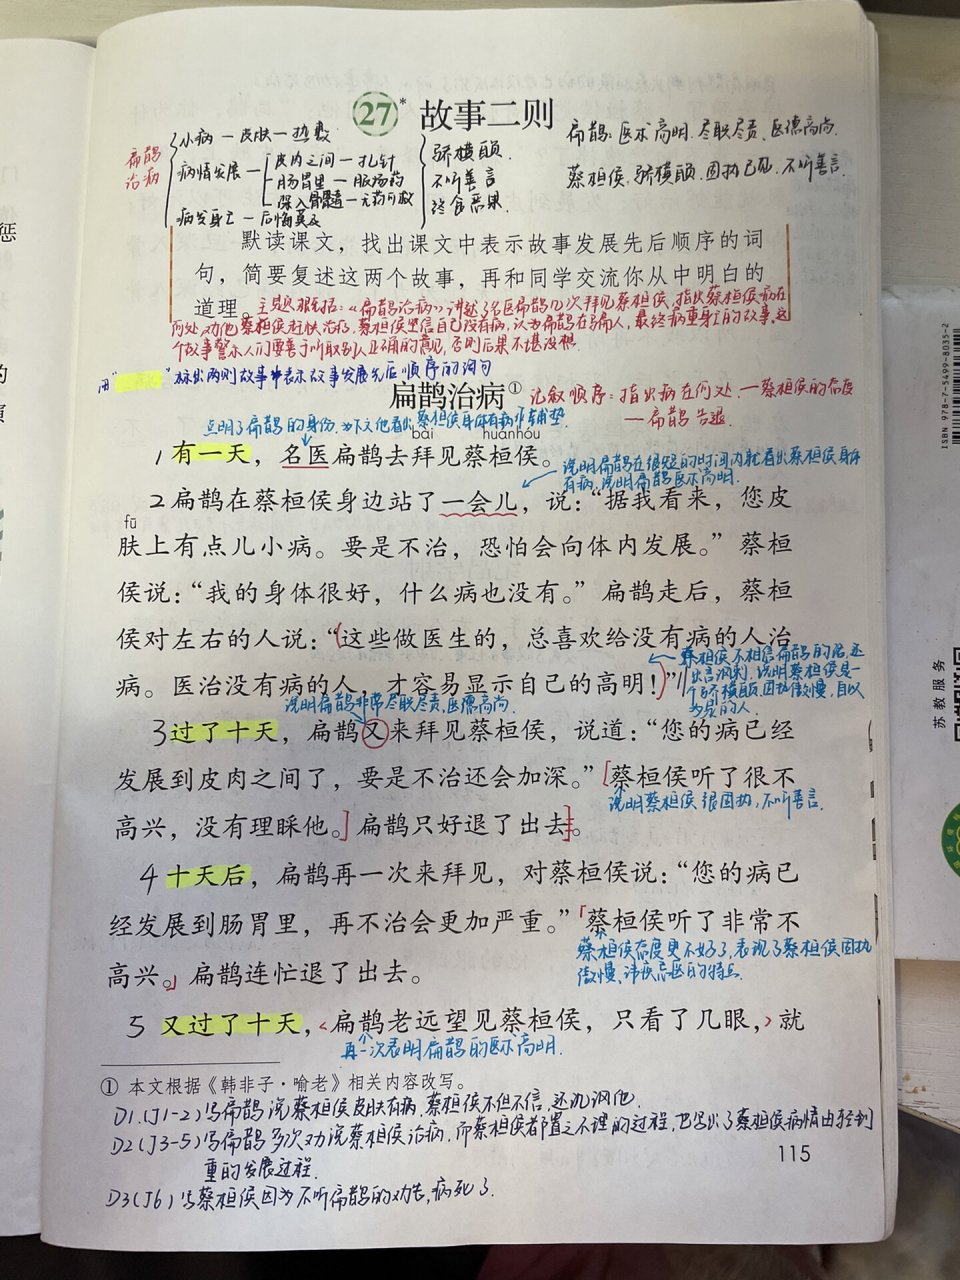 惩
的
27* 故事二则
扁鹊治病
小病—皮肤—热敷
病情发展
皮肉之间—扎针
肠胃里—服汤药
深入骨髓—无药可救
病发身亡—后悔莫及
骄横自负
不听善言
终食恶果
扁鹊：医术高明、尽职尽责、医德高尚
蔡桓侯：骄横自负、固执己见、不听善言
默读课文，找出课文中表示故事发展先后顺序的词
句，简要复述这两个故事，再和同学交流你从中明白的
道理。
主题概括：《扁鹊治病》讲述了名医扁鹊几次拜见蔡桓侯，指出蔡桓侯病在
何处，劝他蔡桓侯赶快治疗，蔡桓侯坚信自己没有病，认为扁鹊在骗人，最终病重身亡的故事。这
个故事警示人们要善于听取别人正确的意见，否则后果不堪设想。
用" "标出两则故事中表示故事发展先后顺序的词句
扁鹊治病①
记叙顺序：指出病在何处—蔡桓侯的态度
—扁鹊告退
点明了扁鹊的身份，为下文他看出蔡桓侯身体有病作铺垫
bài huánhóu
1 有一天，名医扁鹊去拜见蔡桓侯。
说明扁鹊在很短的时间内就看出蔡桓侯身体
有病，说明扁鹊医术高明.
2 扁鹊在蔡桓侯身边站了一会儿，说：“据我看来，您皮
fū
肤上有点儿小病。要是不治，恐怕会向体内发展。”蔡桓
侯说：“我的身体很好，什么病也没有。”扁鹊走后，蔡桓
侯对左右的人说：“这些做医生的，总喜欢给没有病的人治
病。医治没有病的人，才容易显示自己的高明！”
蔡桓侯不相信扁鹊的话，还
出言讽刺，说明蔡桓侯是一
个骄横自负、固执傲慢、自以
为是的人.
说明扁鹊非常尽职尽责，医德高尚.
3 过了十天，扁鹊又来拜见蔡桓侯，说道：“您的病已经
发展到皮肉之间了，要是不治还会加深。”蔡桓侯听了很不
说明蔡桓侯很固执，不听善言.
高兴，没有理睬他。扁鹊只好退了出去。
4 十天后，扁鹊再一次来拜见，对蔡桓侯说：“您的病已
经发展到肠胃里，再不治会更加严重。”蔡桓侯听了非常不
蔡桓侯态度更不好了，表现了蔡桓侯固执
傲慢、讳疾忌医的特点.
高兴。扁鹊连忙退了出去。
5 又过了十天，扁鹊老远望见蔡桓侯，只看了几眼，就
再一次表明扁鹊的医术高明.
① 本文根据《韩非子·喻老》相关内容改写。
D1.(J1-2)写扁鹊说蔡桓侯皮肤有病，蔡桓侯不但不信，还讥讽他.
D2(J3-5)写扁鹊多次劝说蔡桓侯治病，而蔡桓侯都置之不理的过程，也写出了蔡桓侯病情由轻到
重的发展过程.
D3(J6)写蔡桓侯因为不听扁鹊的劝告，病死了.
115
ISBN 978-7-5499-8035-2
苏教服务